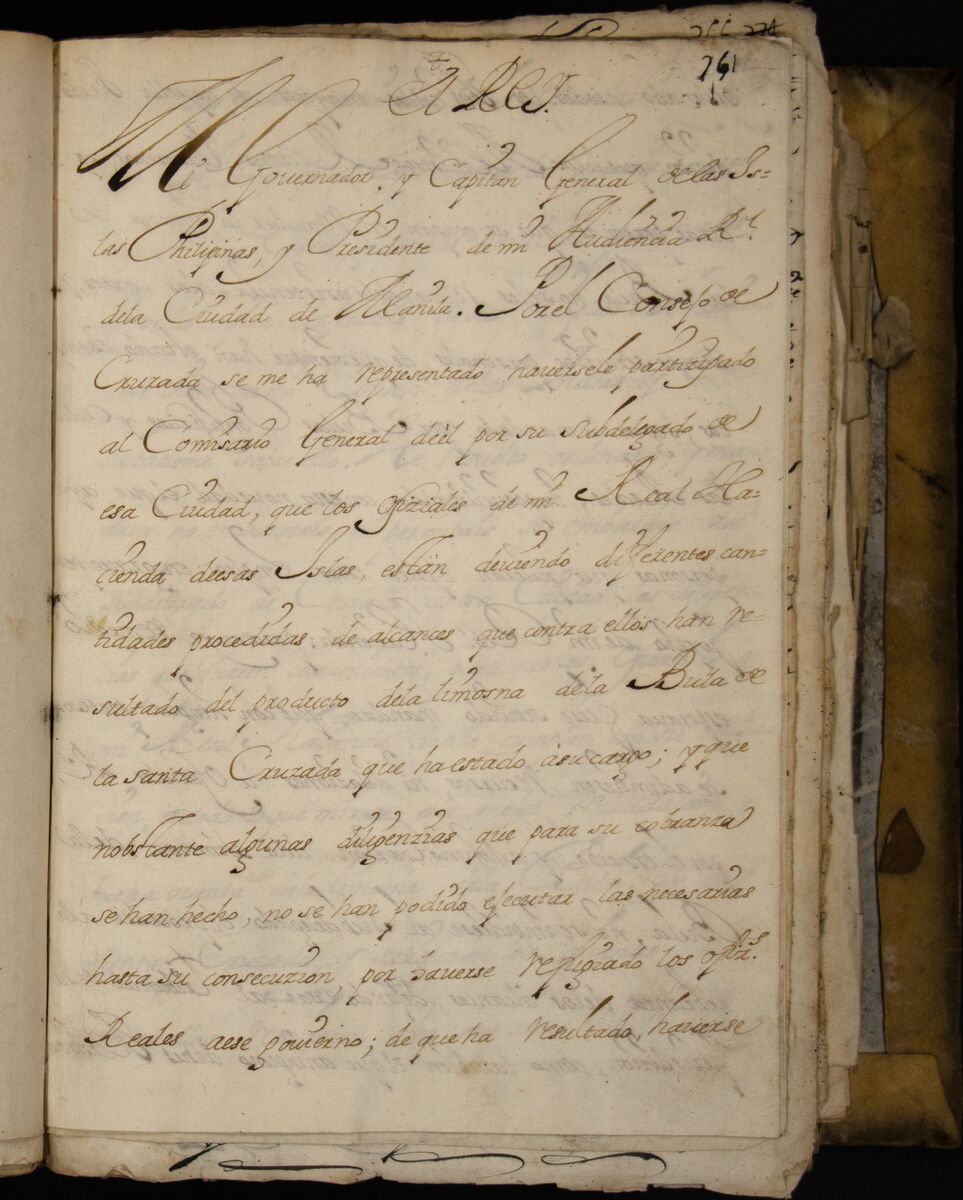 261
El Rey.
Mi Governador, y Capitan General de las Is=
las Philipinas, y Presidente de mi Audiencia Rl.
dela Ciudad de Manila. Por el Consejo de
Cruzada se me ha representado haversele participado
al Comisario General deèl por su subdelegado de
esa Ciudad, que los ofiziales de mi Real Ha=
cienda deesas Islas, estàn deviendo diferentes can=
tidades procedidas de alcances que contra ellos han re=
sultado del producto dela limosna dela Bula de
la santa Cruzada que ha estado àsu cargo; y que
nobstante algunas diligenzias que para su cobranza
se han hecho, no se han podido ejecutar las necesarias
hasta su consecuzion, por haverse refugiado los ofizs.
Reales aese govierno; de que ha resultado haverse